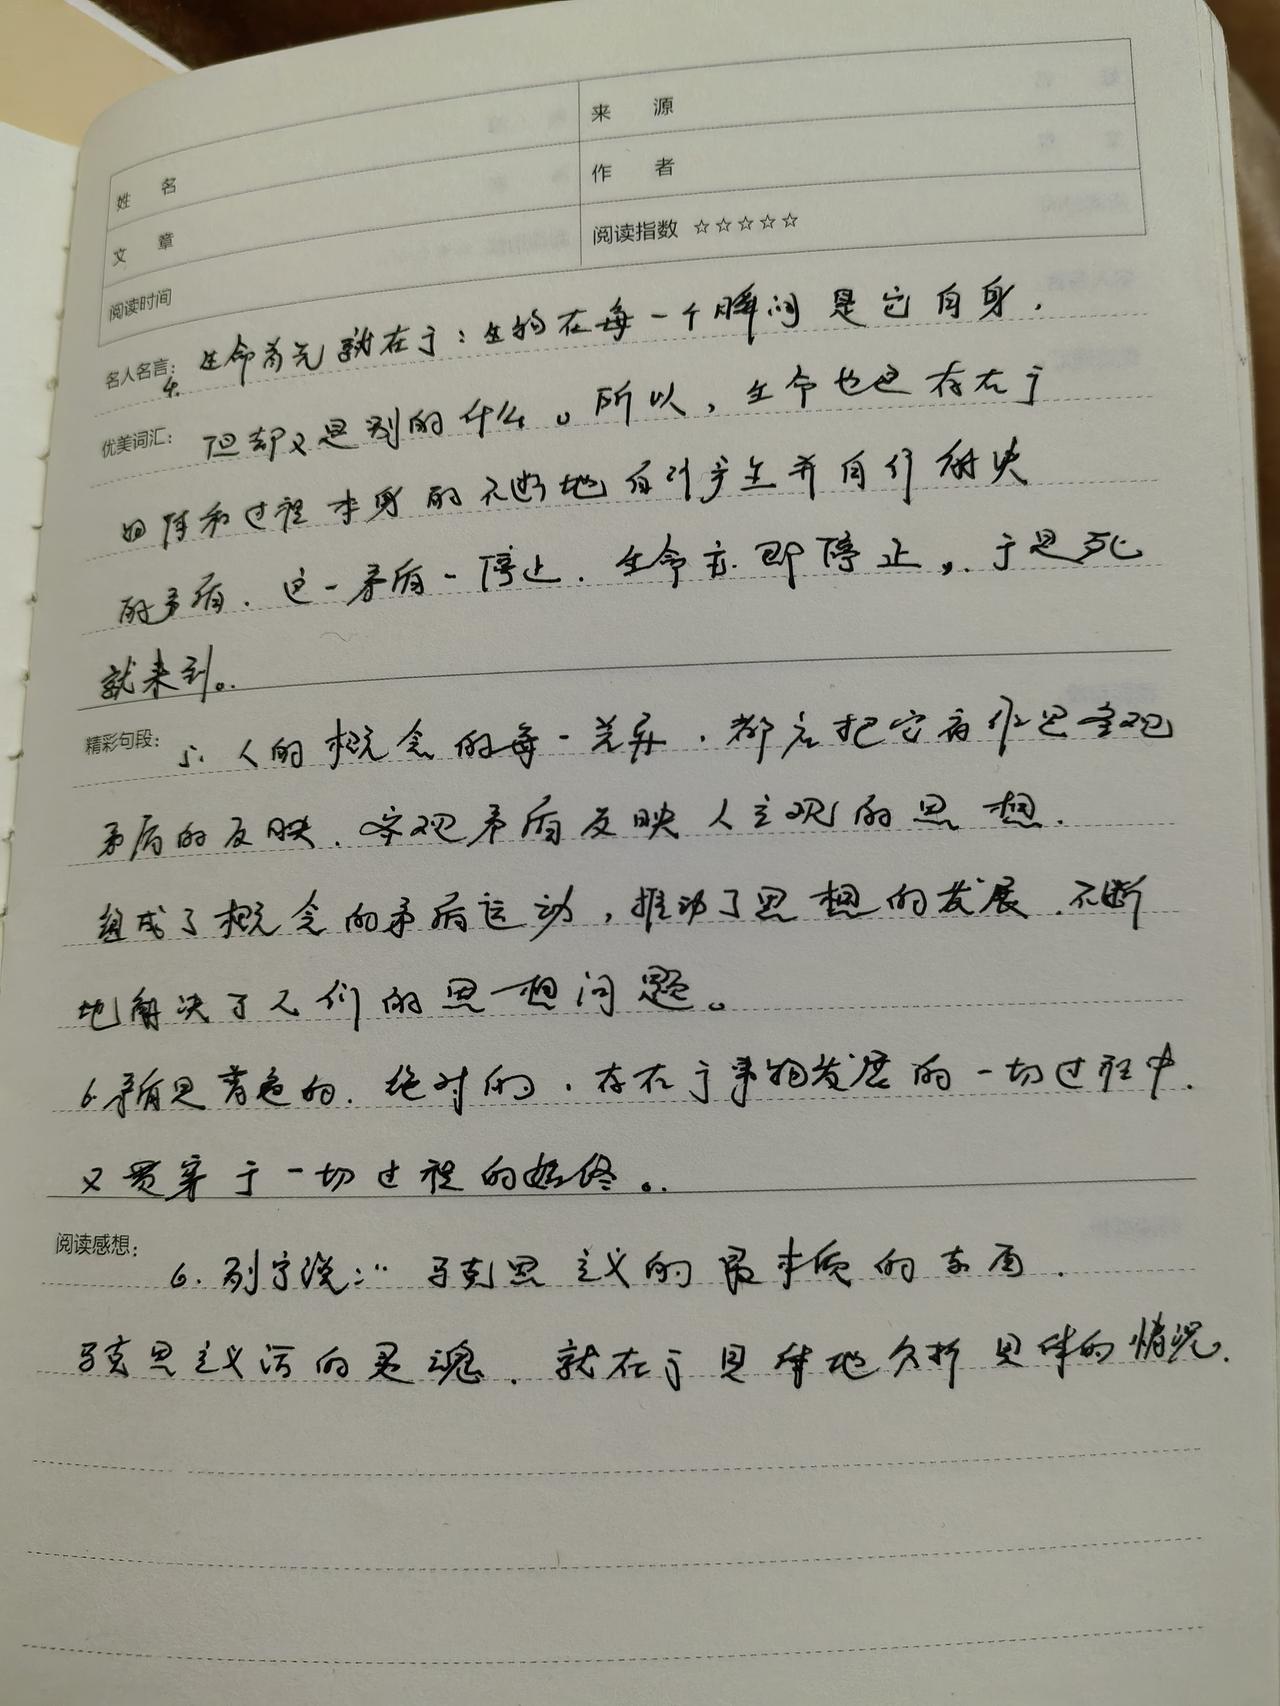 姓 名
来 源
文 章
作 者
阅读时间
阅读指数 ☆☆☆☆☆
名人名言：
4. 生命首先就在于：生物在每一个瞬间是它自身，
优美词汇：
但却又是别的什么。所以，生命也是存在于
物体和过程本身的不断地自行产生并自行解决
的矛盾，这一矛盾一停止，生命亦即停止，于是死
就来到。
精彩句段：
5. 人的概念的每一差异，都应把它看作是客观
矛盾的反映，客观矛盾反映人主观的思想，
组成了概念的矛盾运动，推动了思想的发展，不断
地解决了人们的思想问题。
6. 矛盾是普遍的，绝对的，存在于事物发展的一切过程中，
又贯穿于一切过程的始终。
阅读感想：
6. 列宁说：“马克思主义的最本质的东西，
马克思主义活的灵魂，就在于具体地分析具体的情况，